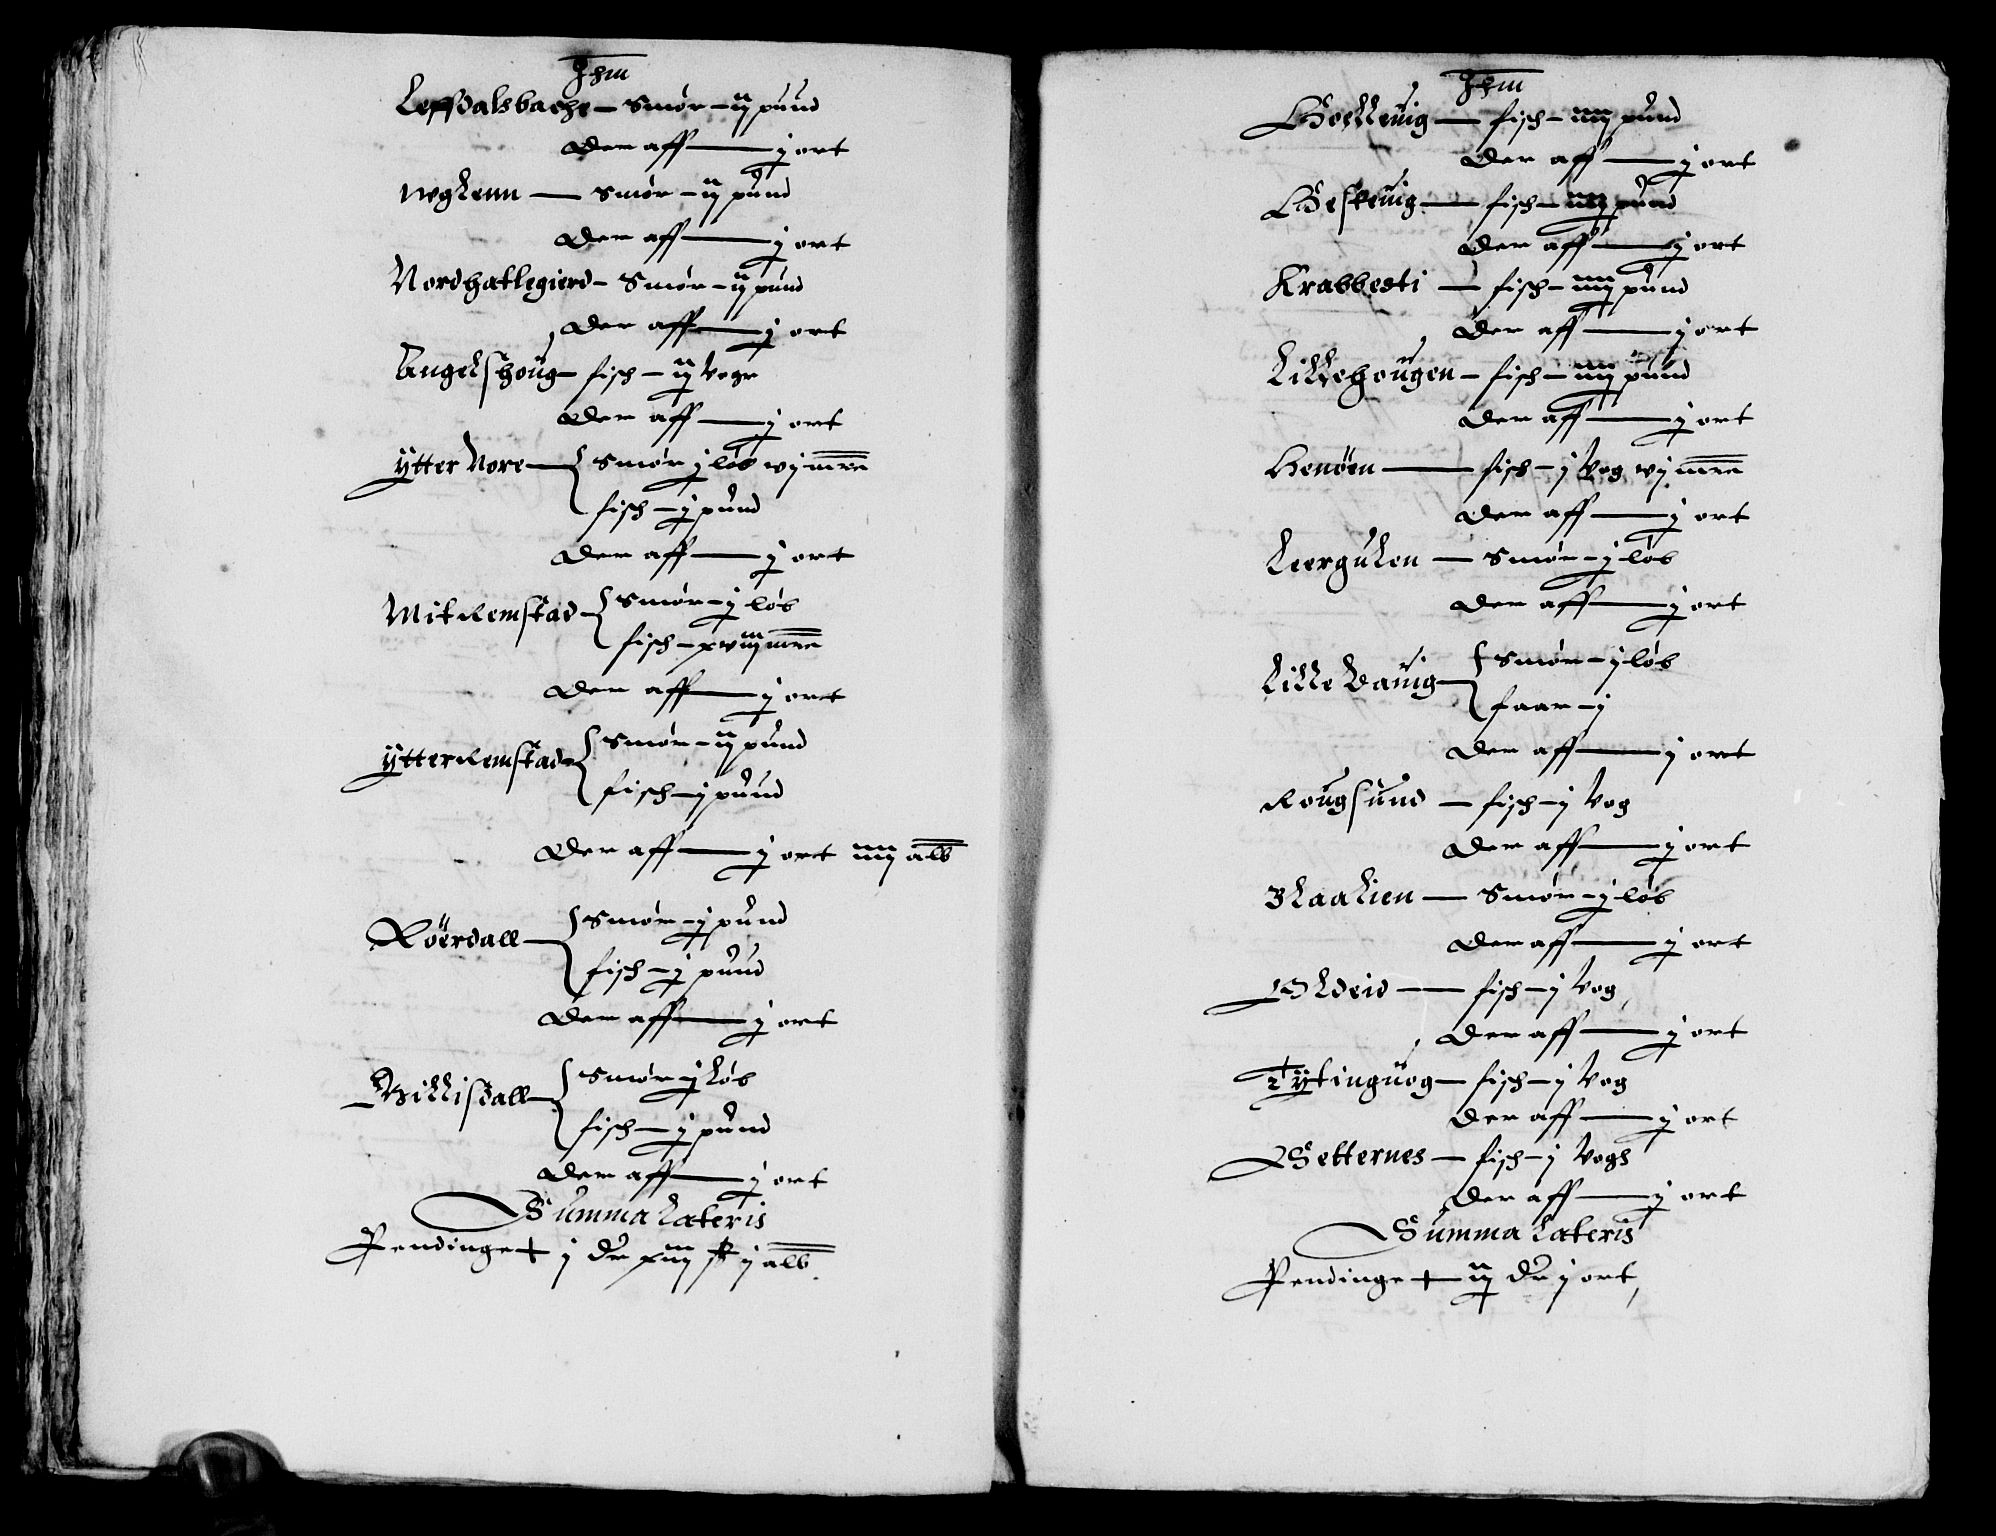 Ihm
Leffdalsbache – Smør – ij pund
Der aff — j ort
Nordhatlegierd – Smør – ij pund
Der aff — j ort
Engelshoug – fisch – ij Voge
Der aff — j ort
Ytter Nore — Smør j løb vj mrc
fisch – j pund
Der aff — j ort
Mit Remstad – Smør – j løb
fisch – xviij mrc
Der aff — j ort
Ytter Remstad – Smør – ij pund
fisch – j pund
Der aff — j ort iiij alb
Röerdall — Smør – j pund
fisch – j pund
Der aff — j ort
Billisdall — Smør – j løb
fisch – j pund
Der aff — j ort
Summa Lateris
Pendinge + j dr xiij sk j alb
Ihm
fisch – iiij pund
Der aff — j ort
Geskeuig — fisch – iiij pund
Der aff — j ort
Krabbesti — fisch – iiij pund
Der aff — j ort
Lillehougen – fisch – iiij pund
Der aff — j ort
Henöen — fisch – j Vog vj mrc
Der aff — j ort
Leergulen — Smør – j løb
Der aff — j ort
Lille Bauig — Smør – j løb
faar – j
Der aff — j ort
Rougsund — fisch – j Vog
Der aff — j ort
Blaalien — Smør – j løb
Der aff — j ort
Oldeid — fisch – j Vog
Der aff — j ort
Tytinguog — fisch – j Vog
Der aff — j ort
Setternes — fisch – j Vogh
Der aff — j ort
Summa Lateris
Pendinge + — iij dr j ort